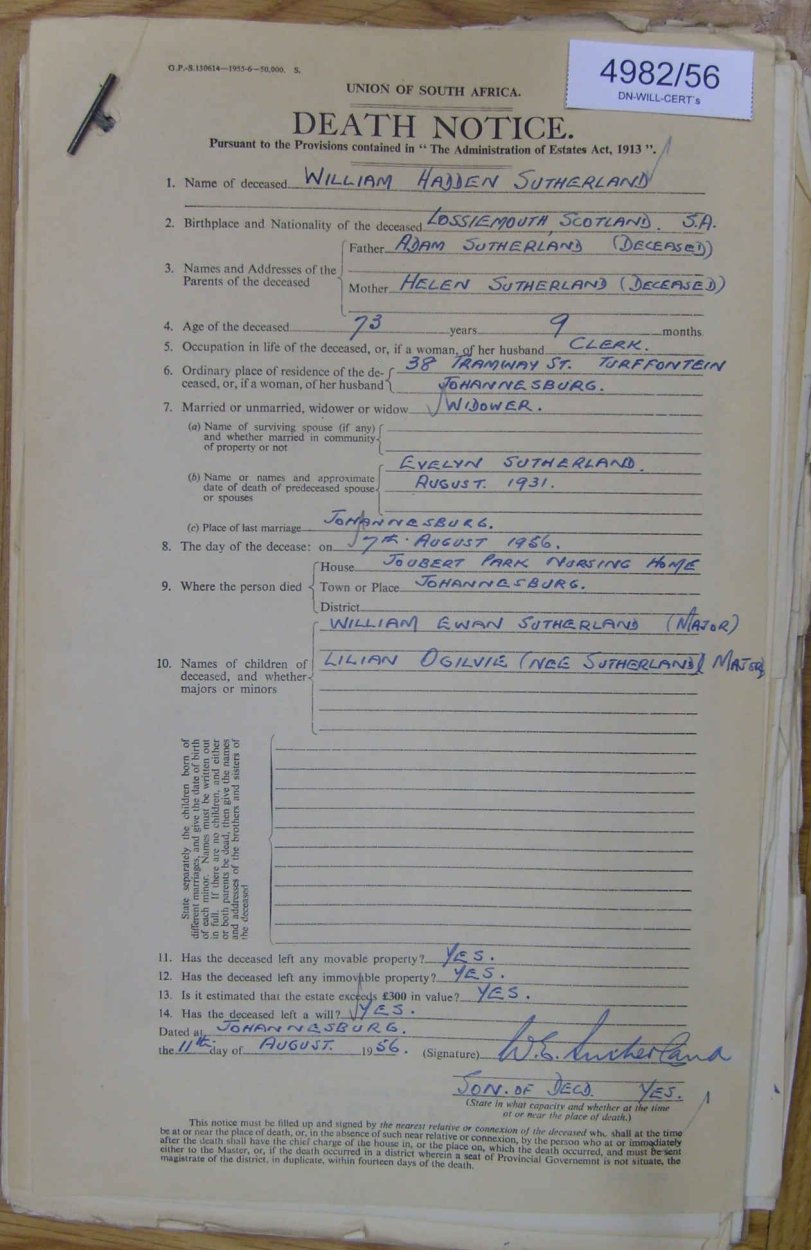 G.P.-S.130614—1955-6—50,000. S.
4982/56
DN-WILL-CERT's
UNION OF SOUTH AFRICA.
DEATH NOTICE.
Pursuant to the Provisions contained in "The Administration of Estates Act, 1913".
1. Name of deceased WILLIAM HADDEN SUTHERLAND
2. Birthplace and Nationality of the deceased LOSSIEMOUTH, SCOTLAND. S.A.
3. Names and Addresses of the Parents of the deceased
Father ADAM SUTHERLAND (DECEASED)
Mother HELEN SUTHERLAND (DECEASED)
4. Age of the deceased 73 years 9 months
5. Occupation in life of the deceased, or, if a woman, of her husband CLERK.
6. Ordinary place of residence of the de-
ceased, or, if a woman, of her husband
38 TRAMWAY ST. TURFFONTEIN
JOHANNESBURG.
7. Married or unmarried, widower or widow WIDOWER.
(a) Name of surviving spouse (if any)
and whether married in community
of property or not
(b) Name or names and approximate
date of death of predeceased spouse
or spouses
EVELYN SUTHERLAND.
AUGUST. 1931.
(c) Place of last marriage JOHANNESBURG.
8. The day of the decease: on 7th AUGUST 1956.
9. Where the person died
House JOUBERT PARK NURSING HOME
Town or Place JOHANNESBURG.
District
10. Names of children of
deceased, and whether
majors or minors
WILLIAM EWAN SUTHERLAND (MAJOR)
LILIAN OGILVIE (NEE SUTHERLAND) MAJOR
State separately the children born of
different marriages, and give the date of birth
of each minor. Names must be written out
in full. If there are no children, and either
or both parents be dead, then give the names
and addresses of the brothers and sisters of
the deceased
11. Has the deceased left any movable property? YES.
12. Has the deceased left any immovable property? YES.
13. Is it estimated that the estate exceeds £300 in value? YES.
14. Has the deceased left a will? YES.
Dated at JOHANNESBURG.
the 11th day of AUGUST. 1956. (Signature) W.E. Sutherland
SON. OF DECD. YES.
(State in what capacity and whether at the time
ot or near the place of death.)
This notice must be filled up and signed by the nearest relative or connexion of the deceased who shall at the time
be at or near the place of death, or, in the absence of such near relative or connexion, by the person who at or immediately
after the death shall have the chief charge of the house in, or the place on, which the death occurred, and must be sent
either to the Master, or, if the death occurred in a district wherein a seat of Provincial Governemnt is not situate, the
magistrate of the district, in duplicate, within fourteen days of the death.